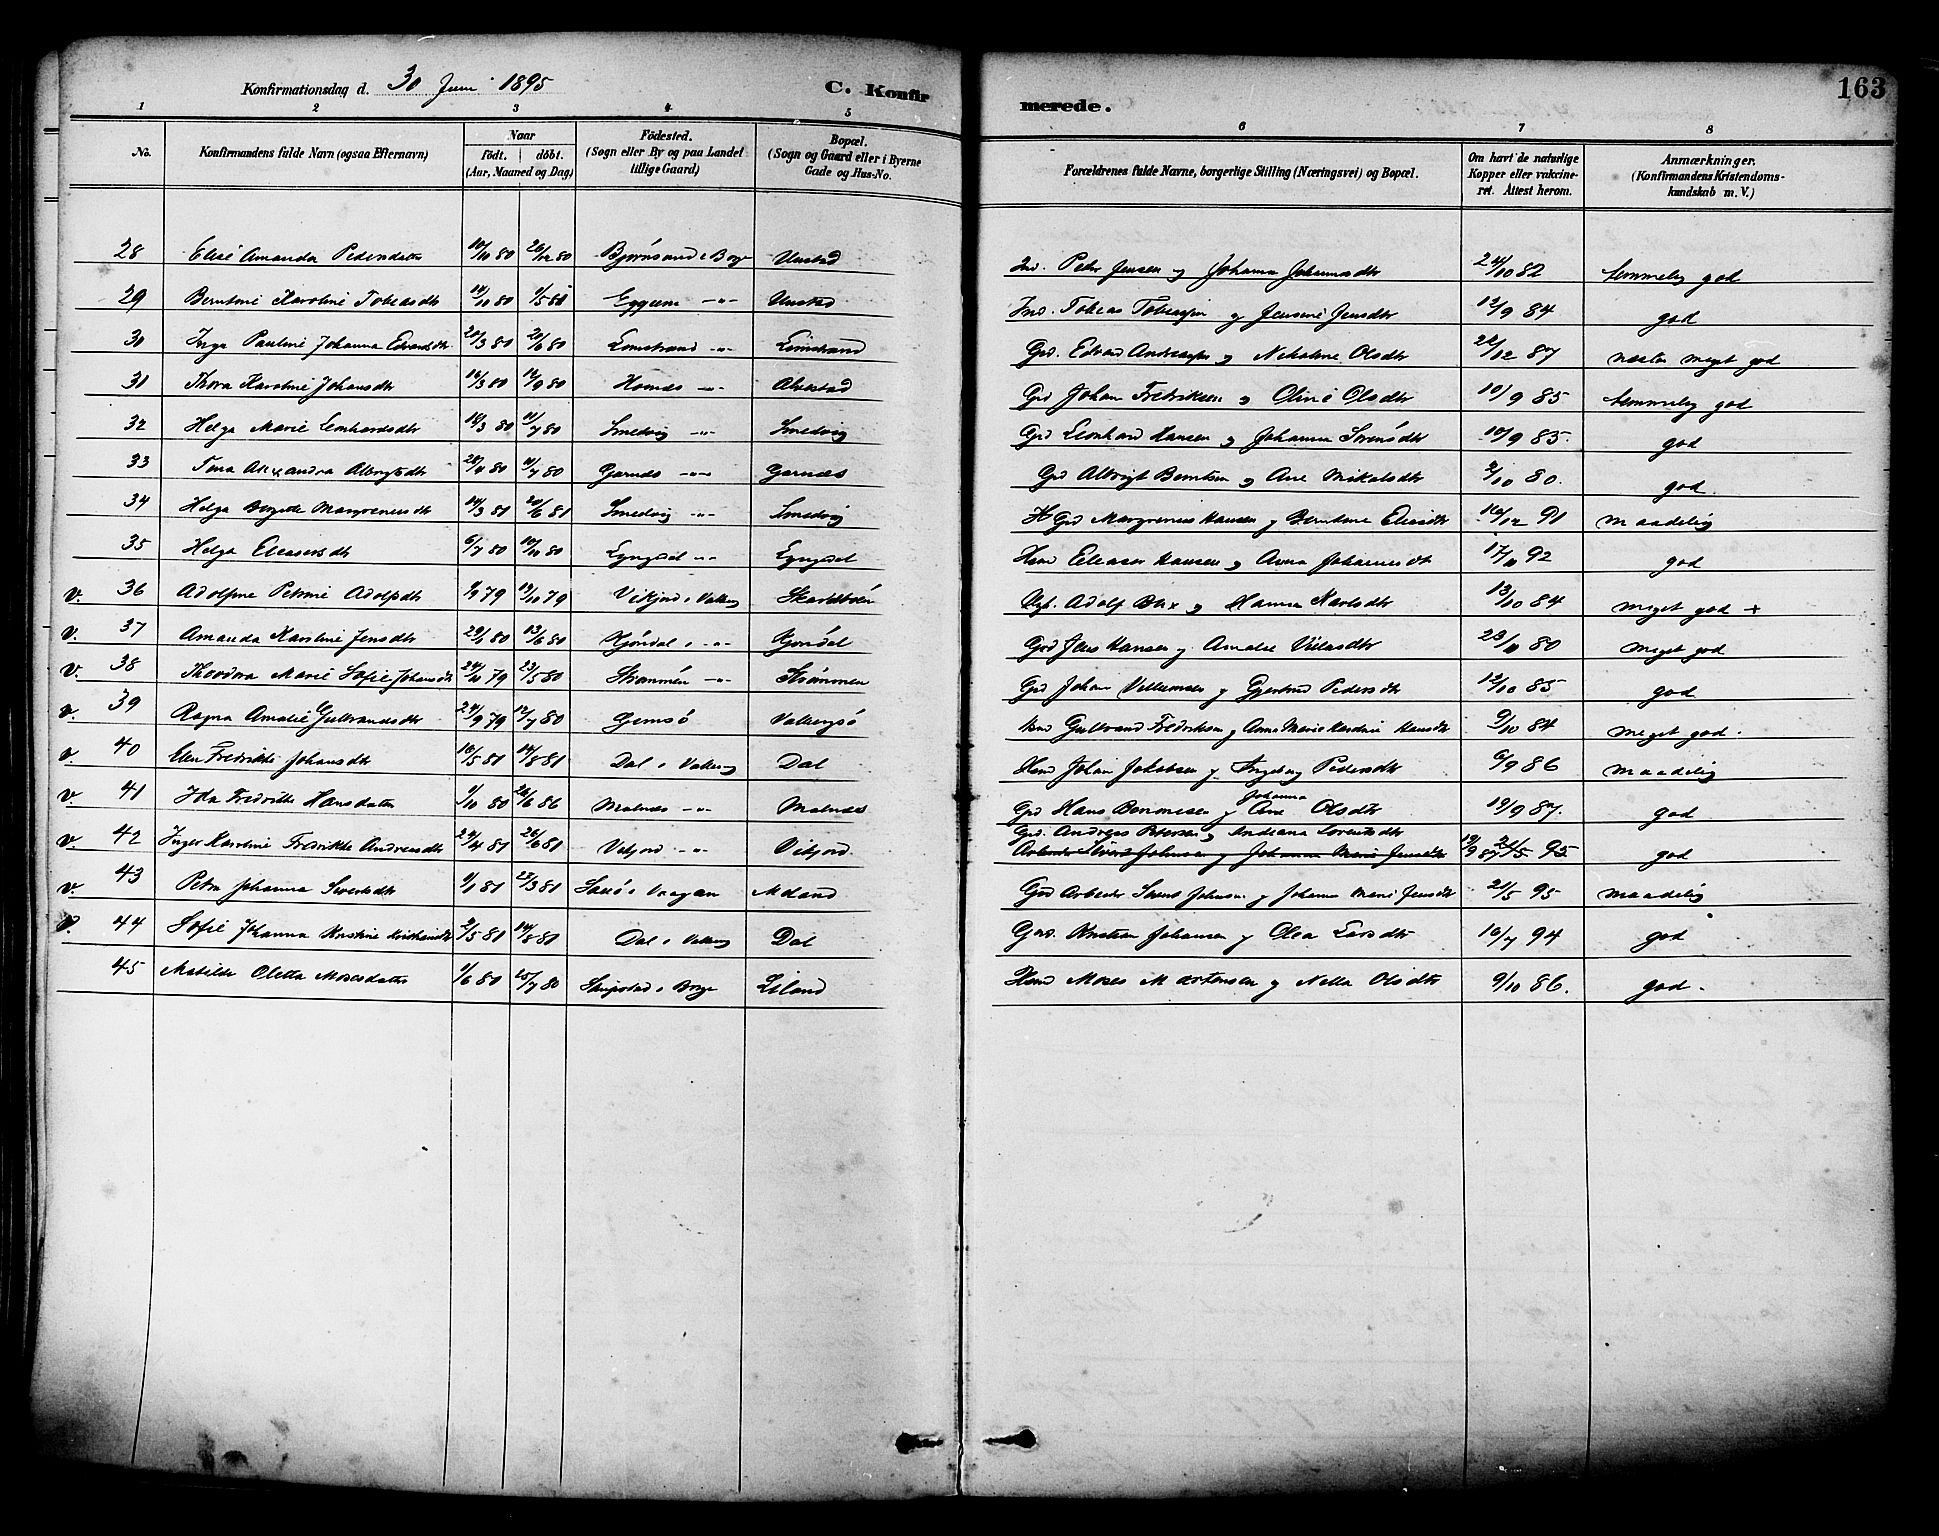 Konfirmationsdag d. 30 Juni 1895
C. Konfirmerede.
163
1 2 3 4 5 6 7 8
No.
Konfirmandens fulde Navn (ogsaa Efternavn)
Naar
Födt. | döbt.
(Aar, Maaned og Dag)
Födested.
(Sogn eller By og paa Landet
tillige Gaard)
Bopæl.
(Sogn og Gaard eller i Byerne
Gade og Hus-No.
Forældrenes fulde Navne, borgerlige Stilling (Næringsvei) og Bopæl.
Om havt de naturlige
Kopper eller vakcine-
ret. Attest herom.
Anmærkninger.
(Konfirmandens Kristendoms-
kundskab m. V.)
28 Elise Amanda Pedersdatter 10/11 80 26/12 80 Bjørnsand i Borge Unstad Ind. Peter Jensen og Johanna Johannesdtr 24/10 82 temmelig god
29 Berntine Karoline Tobiasdtr 14/10 80 1/5 81 Eggum -"- Unstad Ind. Tobias Tobiassen og Jensine Jensdtr 12/9 84 god
30 Inga Pauline Johanna Edvardsdtr 20/3 80 20/6 80 Limstrand -"- Limstrand Grd. Edvard Andreassen og Nikoline Olsdtr 22/12 87 næsten meget god
31 Thora Karoline Johansdtr 16/3 80 12/9 80 Hornæs -"- Alvestad Grd Johan Fredriksen og Oline Olsdtr 10/9 85 temmelig god
32 Helga Marie Leonhardsdtr 18/3 80 11/7 80 Smedvig -"- Smedvig Grd Leonhard Hansen og Johanna Sørensdtr 10/9 85. god
33 Tina Alexandra Albrigtsdtr 28/4 80 11/7 80 Gjernæs -"- Gjernæs Grd Albrigt Berntsen og Ane Mikalsdtr 2/10 80. god.
34 Helga Birgitte Margrenersdtr 14/3 81 20/6 81 Smedvig -"- Smedvig Grd Margrenes Hansen og Berntine Eliasdtr 16/12 91 maadelig
35 Helga Eleasersdtr 6/7 80 10/10 80 Lyngdal -"- Lyngdal Hmd Eleaser Hansen og Anna Johannesdt 17/11 92 god
v. 36 Adolfine Petrine Adolfsdtr 1/9 79 19/10 79 Vikjord i Valberg Adolf Blix og Hanna Karlsdtr 13/10 84 meget god +
v. 37 Amanda Karoline Jensdtr 29/1 80 13/6 80 Gjøndal i -"- Gjøndal Grd Jens Hansen og Amalie Nilsdtr 23/11 80 meget god
v. 38 Theodora Marie Sofie Johansdtr 24/11 79 23/5 80 Strømmen -"- Strømmen Grd Johan Villumsen og Gjertrud Pedersdtr 12/10 85 god
v. 39 Ragna Amalie Gulbrandsdtr 24/9 79 12/7 80 Gimsø Valbergsø Gulbrand Fredriksen og Anne Marie Kardine Hansdtr 9/10 84 meget god.
v. 40 Elen Fredrikke Johansdtr 16/5 81 14/8 81 Dal i Valberg Dal Hmd Johan Jakobsen og Ingeborg Pedersdtr 6/9 86 maadelig
v. 41 Ida Fredrikke Hansdatter 1/10 80 26/6 86 Malnæs -"- Malnæs Grd Hans Benonisen og Johanna Ane Olsdtr 19/9 87. god
v. 42 Inger Karoline Fredrikke Andreasdtr 24/4 81 26/6 81 Vikjord -"- Vikjord Grd. Andreas Petersen og Andiana Lorentsdtr
Arbeider Sivert Johnsen og Johanna Marie Jensdtr 19/9 87 21/5 95 god
v. 43 Petra Johanna Sivertsdtr 1/1 81 27/3 81 i Vaagan Meland Grd Arbeider Sivert Johnsen og Johanna Marie Jensdtr 21/5 95 maadelig
v. 44 Sofie Johanna Kristine Kristiansdtr 2/5 81 14/8 81 Dal i Valberg Dal Grd. Kristian Johansen og Olea Larsdtr 16/7 94 god
45 Matilde Oletta Mosesdatter 1/6 80 25/7 80 i Borge Liland Hmd Moses Mortensen og Nella Olsdtr 9/10 86. god.